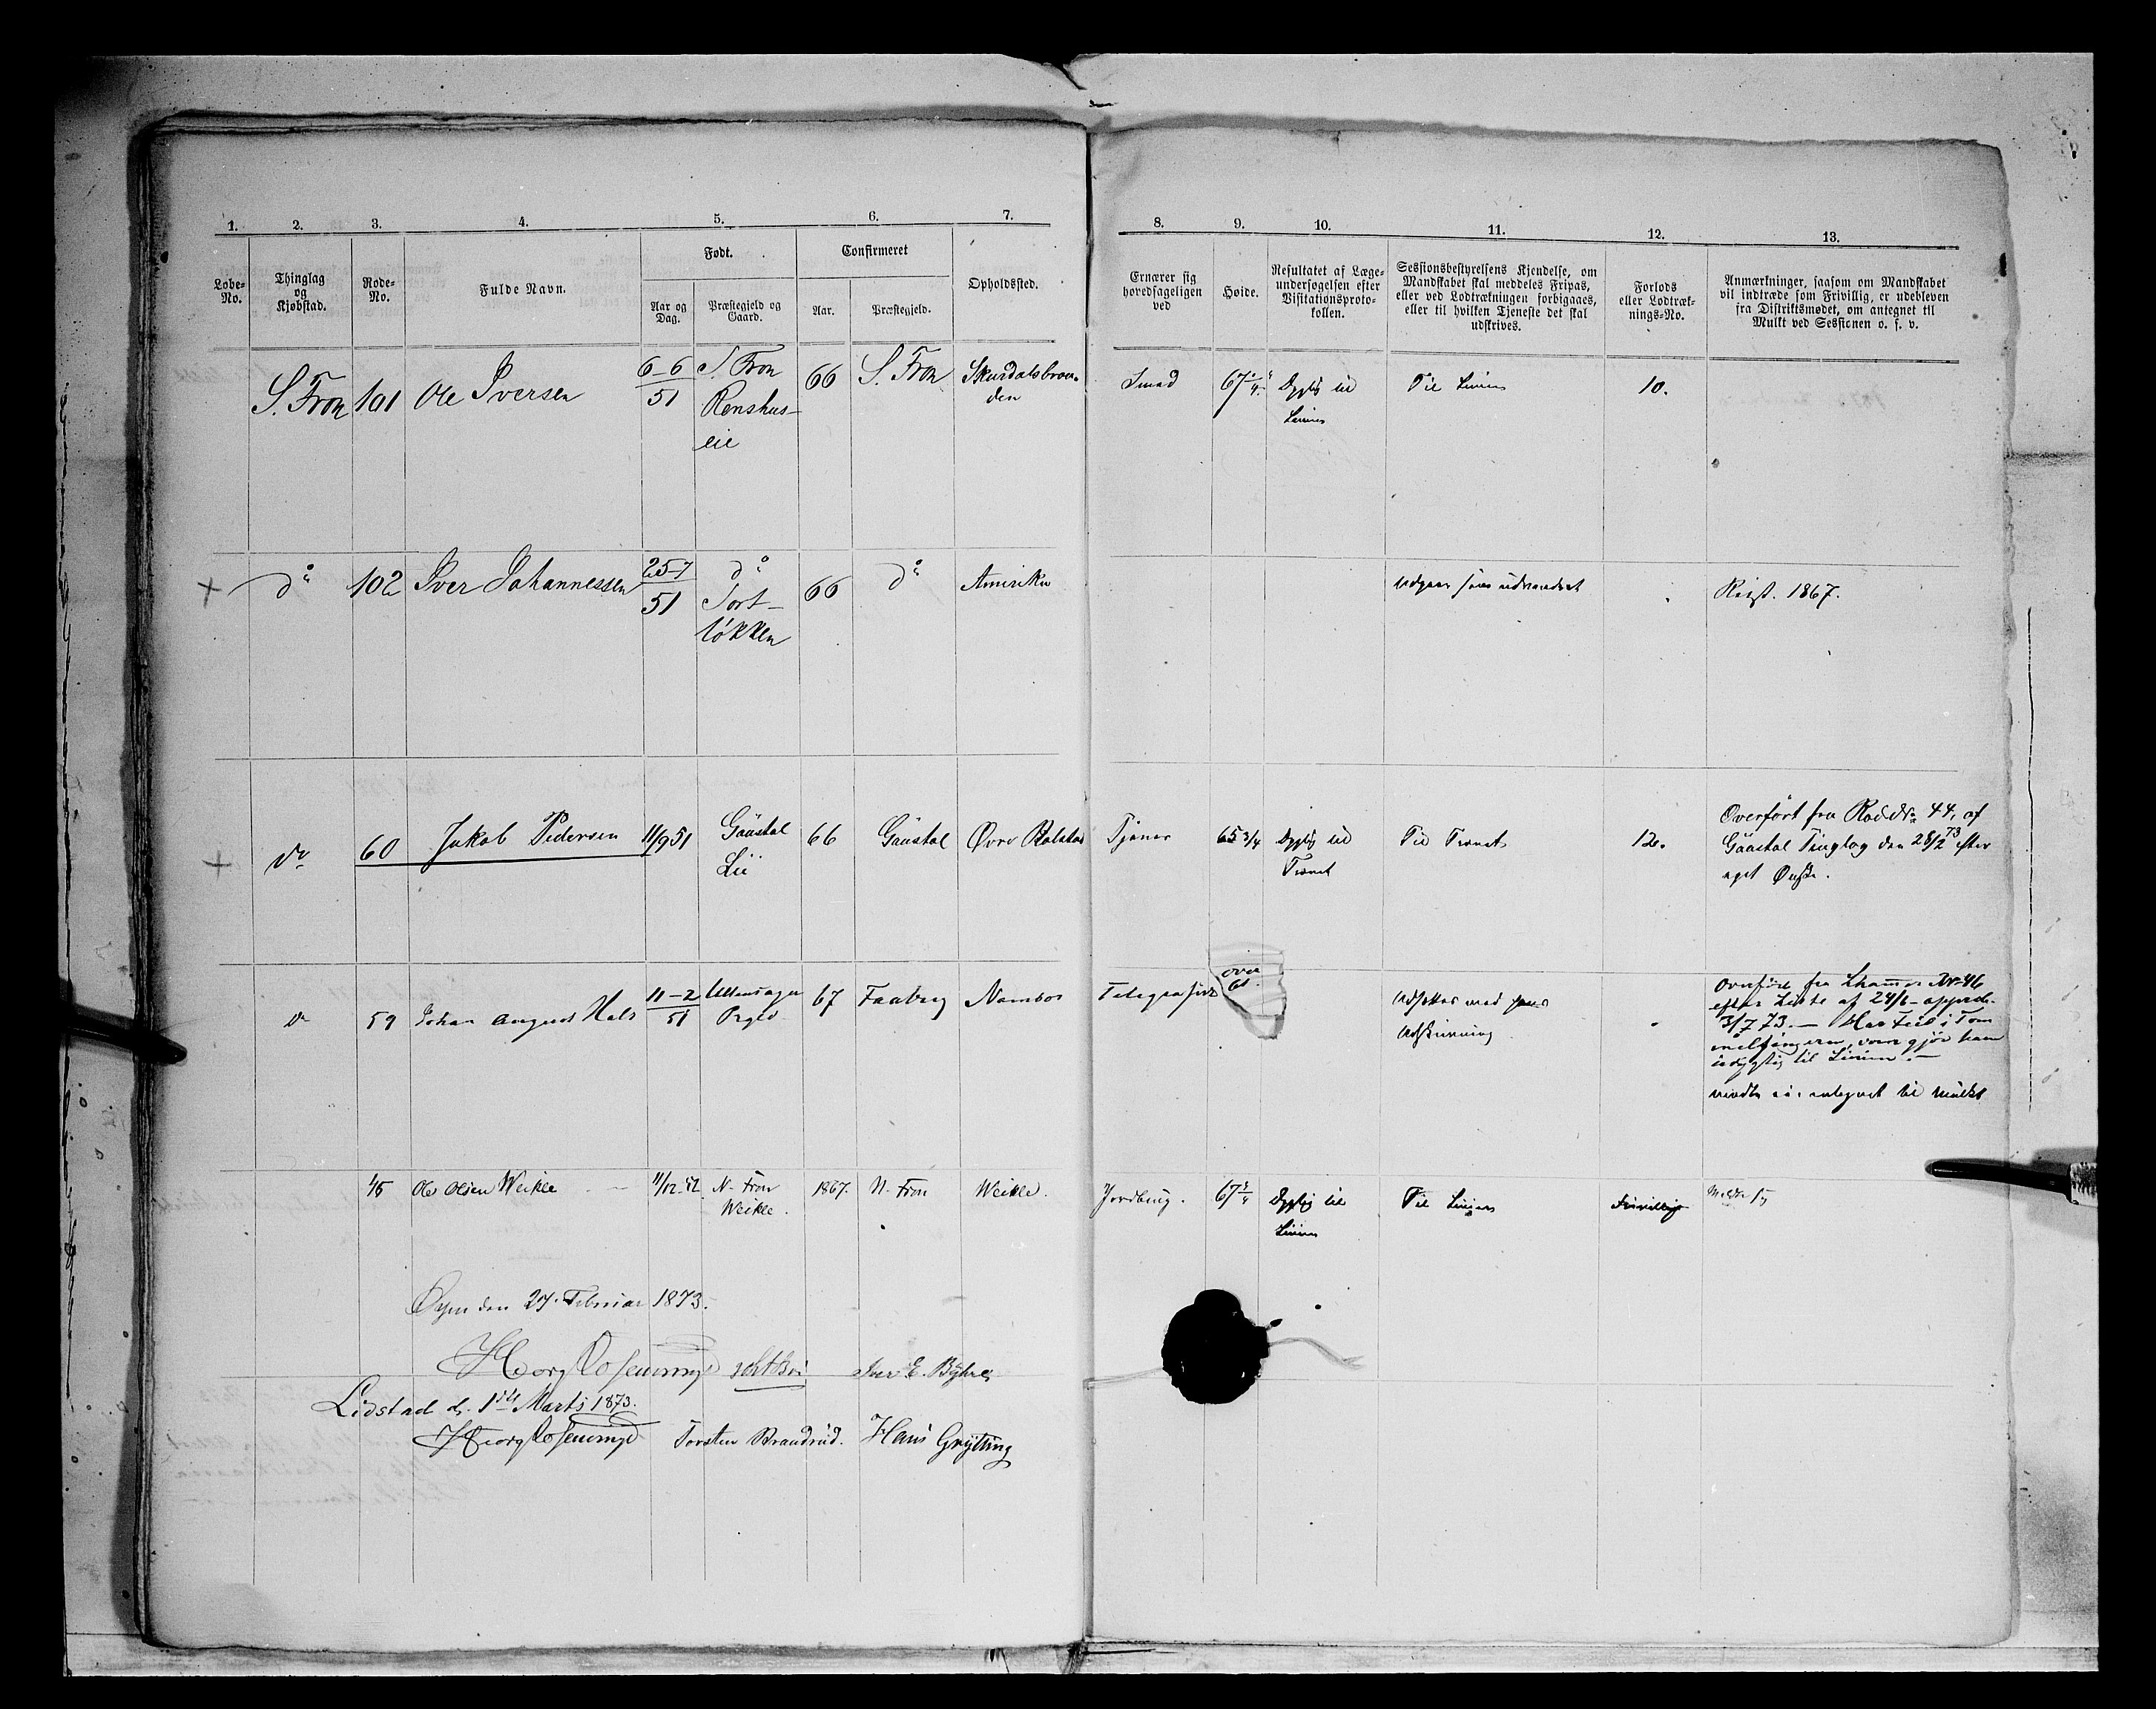 1. 2. 3. 4. 5. 6. 7. 8. 9. 10. 11. 12. 13.
Løbe-
No.
Thinglag
og
Kjøbstad.
Rode-
No.
Fulde Navn.
Født.
Aar og
Dag.
Præstegjeld og
Gaard.
Confirmeret
Aar.
Præstegjeld.
Opholdssted.
Ernærer sig
hovedsageligen
ved
Høide.
Resultatet af Læge-
undersøgelsen efter
Visitationsproto-
kollen.
Sessionsbestyrelsens Kjendelse, om
Mandskabet skal meddeles Fripas,
eller ved Lodtrækningen forbigaaes,
eller til hvilken Tjeneste det skal
udskrives.
Forlods
eller Lodtræk-
nings-No.
Anmærkninger, saasom om Mandskabet
vil indtræde som Frivillig, er udebleven
fra Distriktsmødet, om antegnet til
Mulkt ved Sessionen o. s. v.
S. Fron 101 Ole Iversen 6-6 51 S. Fron 66 S. Fron Smed 67 Dygtig til Til Linien 10.
Renshus-
eie
den
Linien
+ do 102 Iver Johannessen 25-7 51 do 66 do Amerika udgaar som udvandret Reist. 1867.
løkken
+ do 60 Jakob Pedersen 11/9 51 Gausdal 66 Gausdal Øvre Tjener 65 3/4 Dygtig til Til Trænet 12.
Lie
Trænet
Overført fra Rode No 44, af
Gausdal Tinglag den 28/2 73 efter
eget Ønske.
do 59 Johan August Hals 11-2 51 Ullensager 67 Faaberg Namsos over
Prgld.
61.
Udsættes med
Udskrivning
Overført fra No 46
efter af 24/6
3/7 73. — Har Feil i Tom
gjør ham
udygtig til Linien. —
antegnet til Mulkt
45 Ole Olsen Weikle N. Fron 1867. N. Fron Weikle. Jordbrug. 67 3/4 Dygtig til Til Linien Frivillig
Weikle.
Linien
Øyen den 27. Februar 1873.
Iver E. Byhre
Lidstad d. 1ste Marts 1873.
Torsten Brandrud. Hans Grytting